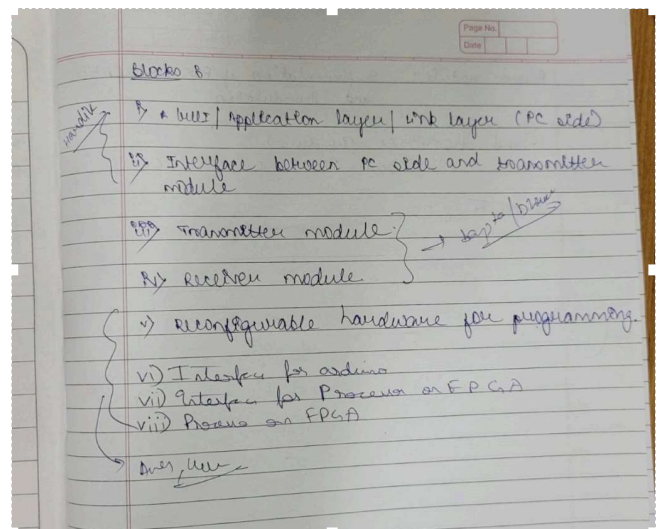 Page No.
Date
Blocks :
i) GUI / Application layer / Link layer (PC side)
ii) Interface between PC side and transmitter
module
iii) Transmitter module
iv) Receiver module
v) Reconfigurable hardware for programming.
vi) Interface for arduino
vii) Interface for Processor on FPGA
viii) Process on FPGA